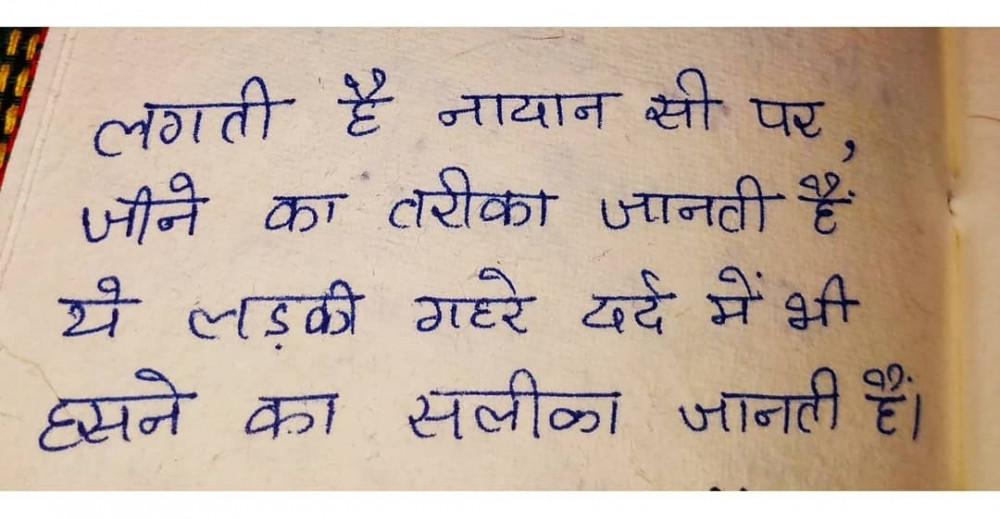 लगती है नायान सी पर,
जीने का तरीका जानती हैं
ये लड़की गहरे दर्द में भी
हसने का सलीका जानती हैं।